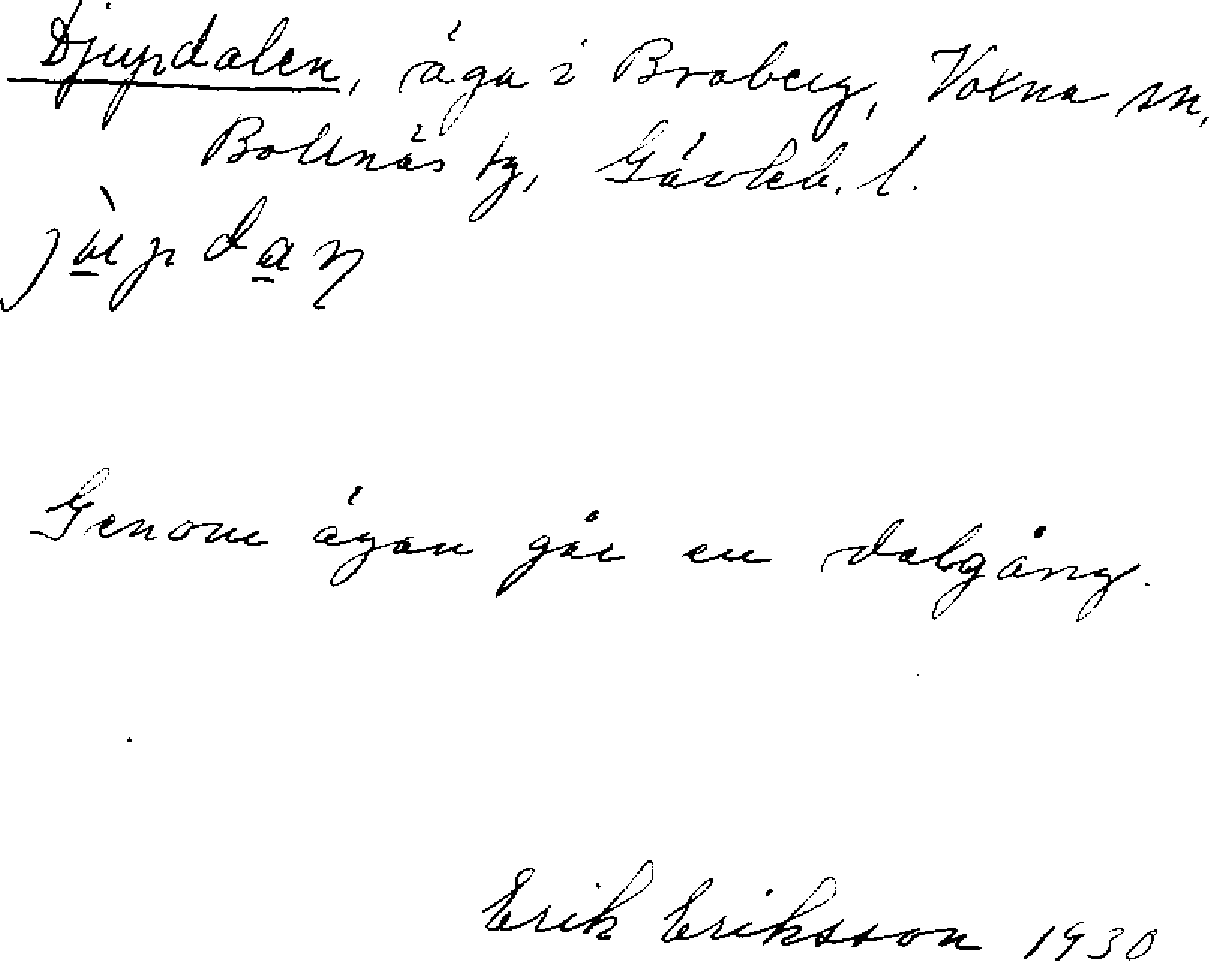 Djupdalen, äga i Broberg, Voxna sn,
Bollnäs tg, Gävleb. l.
Genom ägan går en dalgång.
Erik Eriksson 1930